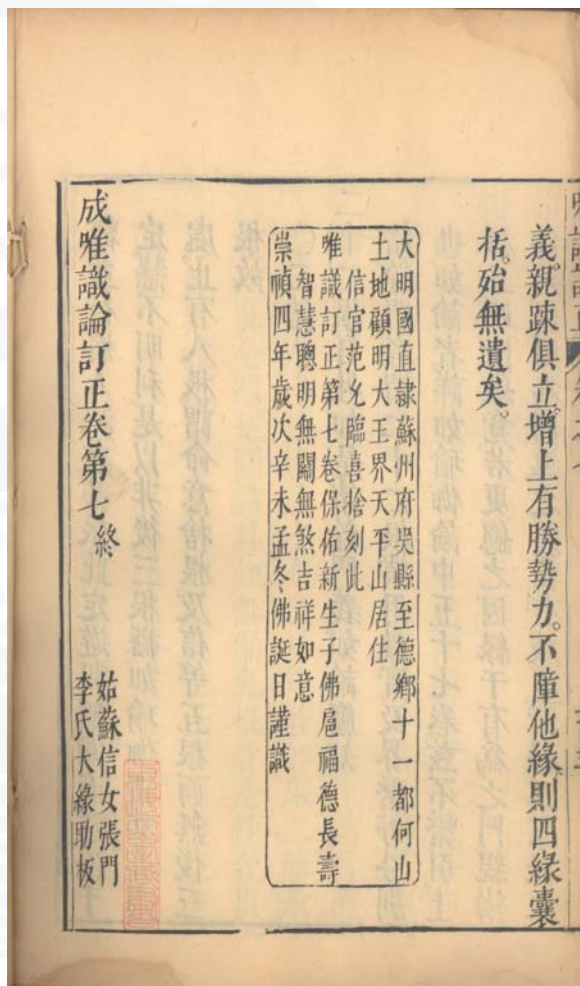 義。親疎俱立。增上有勝勢力。不障他緣。則四緣囊
括。殆無遺矣。
大明國直隸蘇州府吳縣至德鄉十一都何山
土地顧明大王界天平山居住
信官范允臨喜捨刻此
唯識訂正第七卷保佑新生子佛扈福德長壽
智慧聰明無關無煞吉祥如意
崇禎四年歲次辛未孟冬佛誕日謹識
成唯識論訂正卷第七終
姑蘇信女張門
李氏大緣助板